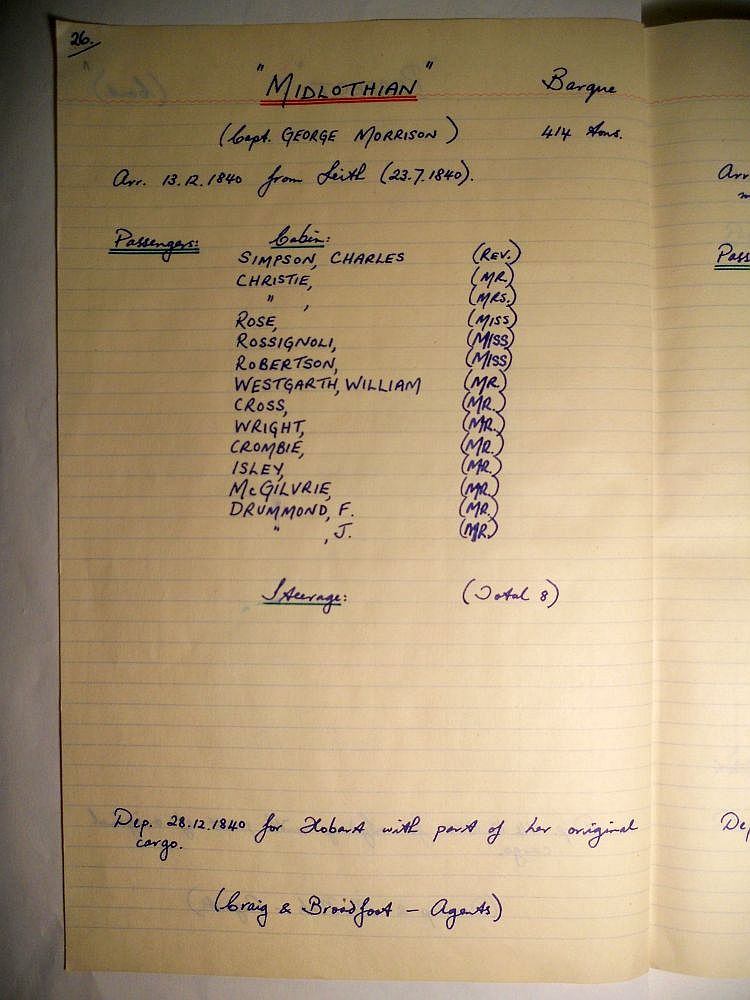 26.
"MIDLOTHIAN" Barque
(Capt. GEORGE MORRISON) 414 tons.
Arr. 13.12.1840 from Leith (23.7.1840).
Passengers: Cabin:
SIMPSON, CHARLES (REV.)
CHRISTIE, (MR.)
" , (MRS.)
ROSE, (MISS)
ROSSIGNOLI, (MISS)
ROBERTSON, (MISS)
WESTGARTH, WILLIAM (MR.)
CROSS, (MR.)
WRIGHT, (MR.)
CROMBIE, (MR.)
ISLEY, (MR.)
McGILVRIE, (MR.)
DRUMMOND, F. (MR.)
" , J. (MR.)
Steerage: (Total 8)
Dep. 28.12.1840 for Hobart with part of her original
cargo.
(Craig & Broadfoot - Agents)
Arr
Pass
Dep